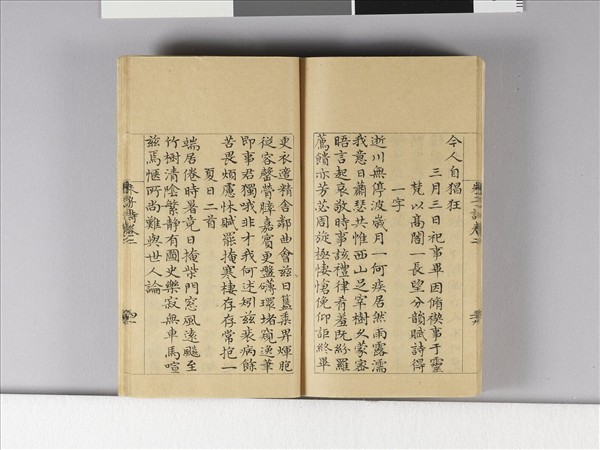 令人自猖狂
三月三日祀事畢因脩禊事于靈
梵以高閣一長望分韻賦詩得
一字
逝川無停波歲月一何疾居然雨露濡
我意日蕭瑟共惟西山足宰樹久蒙密
晤言起哀敬時事該禮律肴羞既紛羅
薦饋亦芳苾周旋極悽愴俛仰詎終畢
更衣造精舍鄰曲會茲日簋乘昇煇胞
從容罄管膵嘉賓更盤礴環堵窺逸華
即事君獨哦非才我何述矧茲裴病餘
苦畏煩慮怵賦罷掩寒棲存存常抱一
夏日二首
端居倦時暑竟日掩柴門窓風遠飈至
竹樹清陰繁靜有圖史樂寂無車馬喧
茲焉愜所尚難與世人論